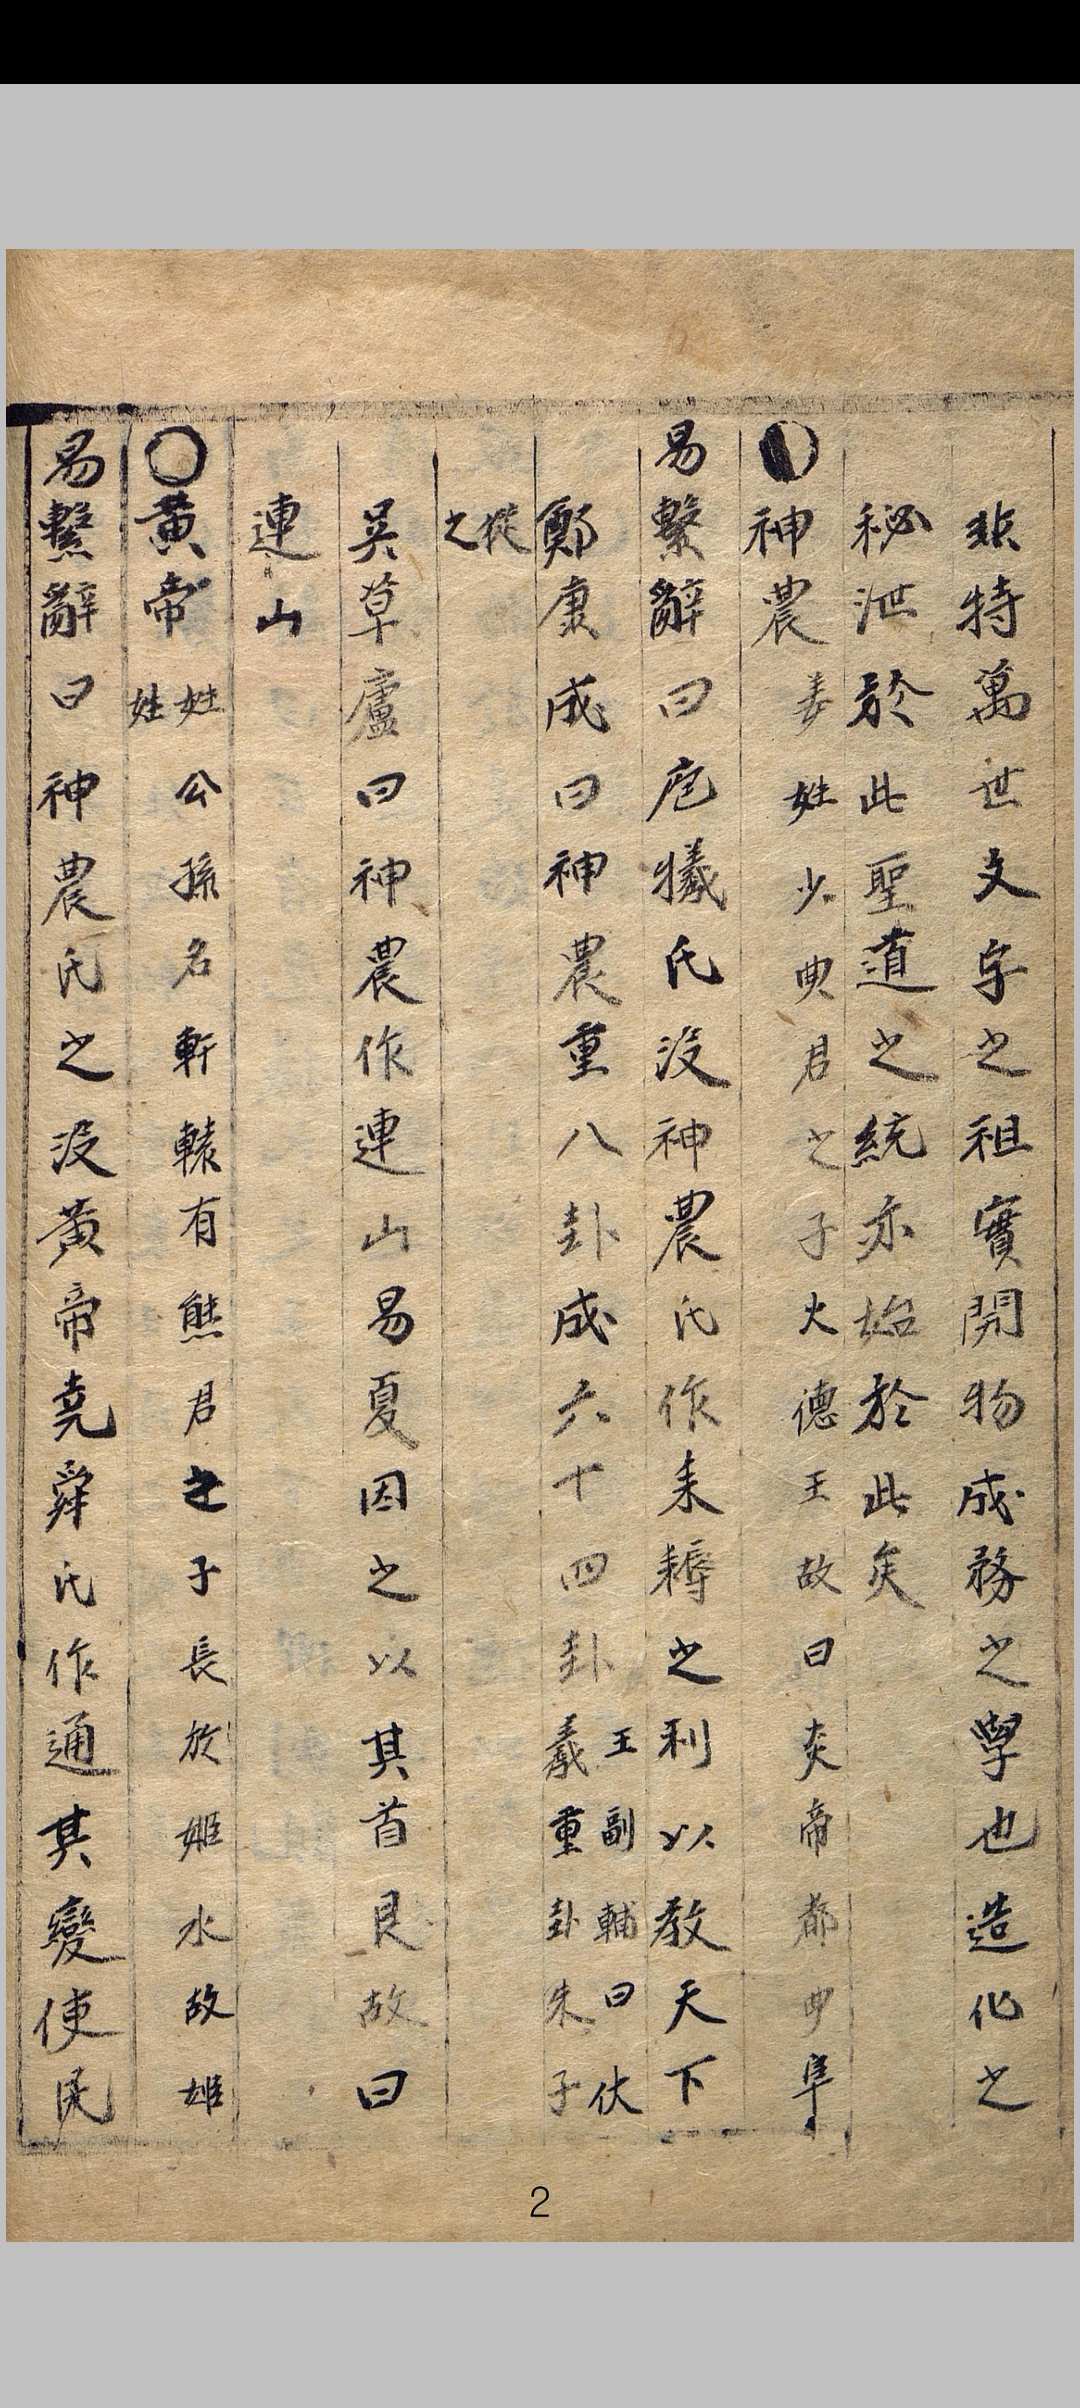 非特萬世文字之祖實開物成務之學也造化之
秘泄於此聖道之統亦始於此矣
神農 姜姓少典君之子火德王故曰炎帝都曲阜
易繫辭曰庖犧氏沒神農氏作耒耨之利以教天下
鄭康成曰神農重八卦成六十四卦 王副輔曰伏
羲重卦朱子
從
之
吳草廬曰神農作連山易夏因之以其首艮故曰
連山
〇黃帝 姓公孫名軒轅有熊君之子長於姬水故姬
姓
易繫辭曰神農氏之沒黃帝堯舜氏作通其變使民
2